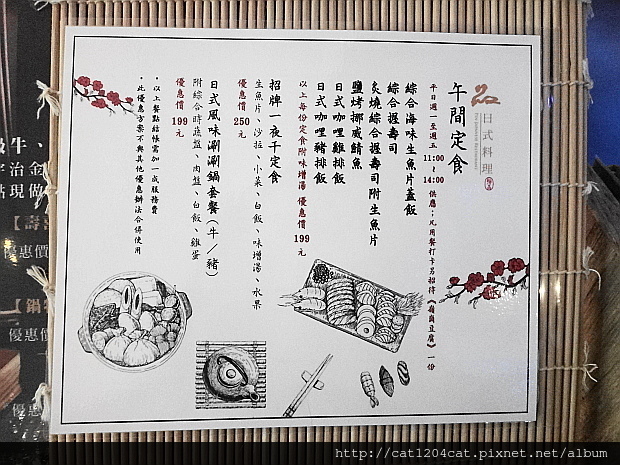 日式料理
午間定食
平日週一至週五 11:00~14:00 供應；凡用餐打卡另招待《嶺崗豆腐》一份
綜合海味生魚片蓋飯
綜合握壽司
炙燒綜合握壽司附生魚片
鹽烤挪威鯖魚
日式咖哩雞排飯
日式咖哩豬排飯
以上每份定食附味增湯 優惠價 199 元
招牌一夜干定食
生魚片、沙拉、小菜、白飯、味增湯、水果
優惠價 250 元
日式風味涮涮鍋套餐（牛／豬）
附綜合時蔬盤、肉盤、白飯、雞蛋
優惠價 199 元
・以上餐點結帳需加一成服務費
・此優惠方案不與其他優惠辦法合併使用
牛、
治金
現做
優惠價
【鍋
優惠價
優惠
http://cat1204cat.pixnet.net/album